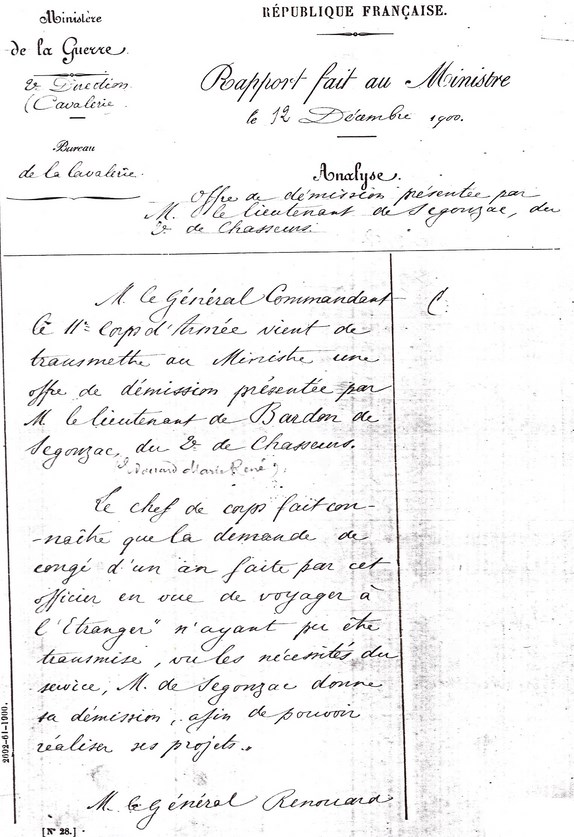 Ministère
de la Guerre
2e Direction
(Cavalerie
Bureau
de la Cavalerie.
RÉPUBLIQUE FRANÇAISE.
Rapport fait au Ministre
le 12 Décembre 1900.
Analyse.
Offre de démission présentée par
M. le lieutenant de Segonzac, du
2e de Chasseurs.
M. le Général Commandant
le 11e Corps d'Armée vient de
transmettre au Ministre une
offre de démission présentée par
M. le lieutenant de Bardon de
Segonzac, du 2e de Chasseurs.
(Edouard Marie René).
Le chef de corps fait con-
-naître que la demande de
congé d'un an faite par cet
officier en vue de voyager à
l'Etranger" n'ayant pu être
transmise, vu les nécessités du
service, M. de Segonzac donne
sa démission, afin de pouvoir
réaliser ses projets.
M. le Général Renouard
C.
2602-61-1900.
[N° 28.]